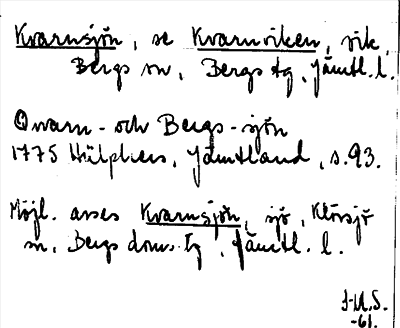 Kvarnsjön, se Kvarnviken, vik,
Bergs sn, Bergs tg, Jämtl. l.
Qvarn- och Bergs-sjön
1775 Hülphers, Jämtland, s. 93.
Möjl. avses Kvarnsjön, sjö, Klövsjö
sn, Bergs doms. tg, Jämtl. l.
J-M. S.
-61.